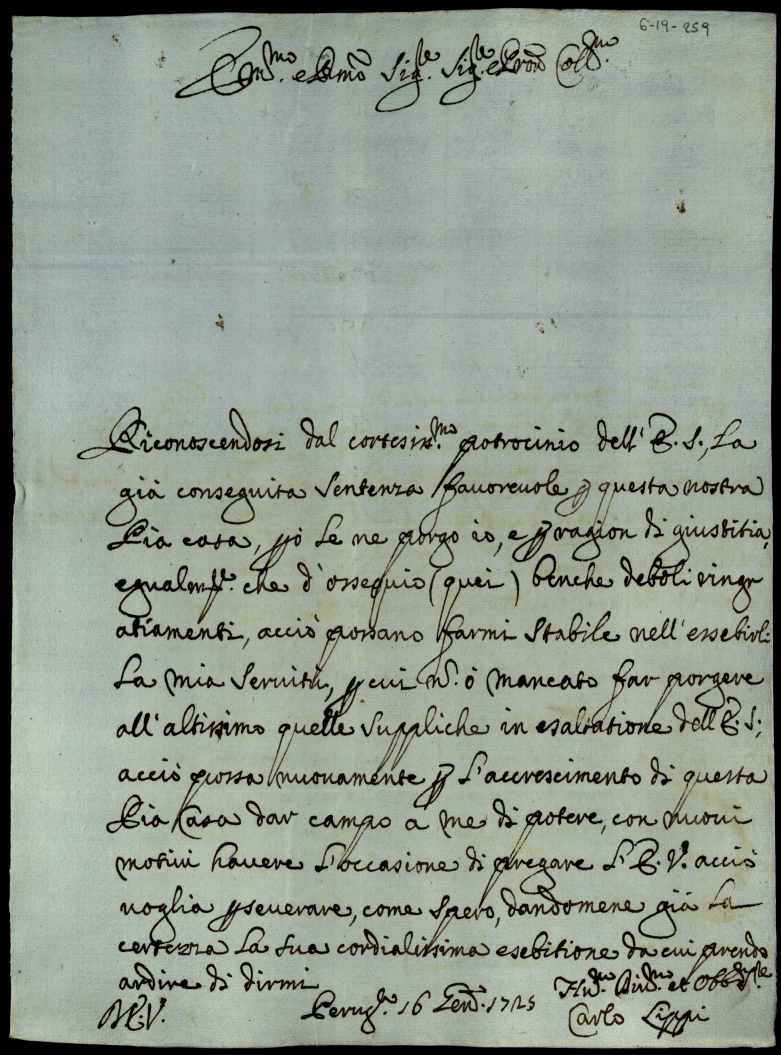 6-19-259
Em.mo e Rmo Sig.re Sig.re e Pron Col.mo
Riconoscendosi dal cortesiss.mo patrocinio dell' E. S., La
già conseguita Sentenza favorevole p questa nostra
Pia casa, pò Le ne porgo io, e p ragion di giustitia,
egualm.te che d'ossequio (quei) benche deboli ringr
atiamenti, acciò possano farmi Stabile nell'essebirli
La mia Servitù, p cui n. ò mancato far porgere
all'altissimo quelle Suppliche in esaltatione dell E. S.,
acciò possa nuovamente p L'accrescimento di questa
Pia Casa dar campo a me di potere, con nuovi
motivi havere L'occasione di pregare L'E. V. acciò
voglia pseverare, come spero, dandomene già La
certezza La sua cordialissima esebitione da cui prendo
ardire di dirmi
Perug.a 16 Zen. 1725
Carlo Lippi